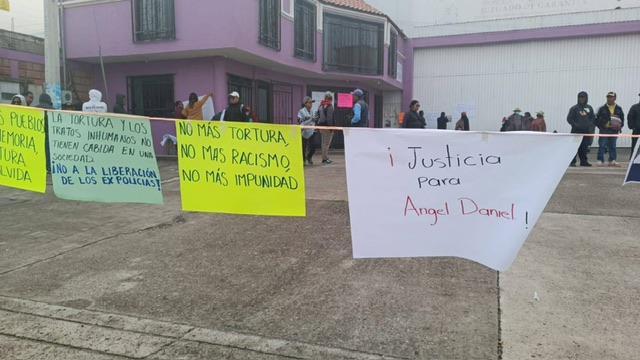 S PUEBLOS
MEMORIA
TURA
LVIDA
LA TORTURA Y LOS
TRATOS INHUMANOS NO
TIENEN CABIDA EN UNA
SOCIEDAD.
¡NO A LA LIBERACIÓN
DE LOS EX POLICIAS!
NO MÁS TORTURA,
NO MAS RACISMO,
NO MÁS IMPUNIDAD
¡Justicia
para
Angel Daniel!